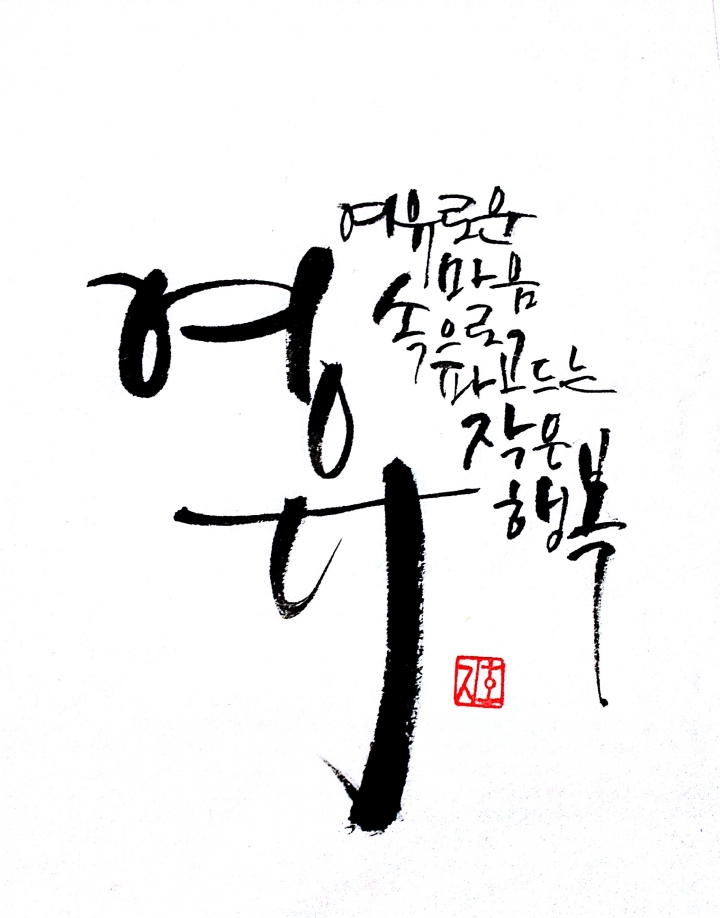 여유
여유로운
마음
속으로
파고드는
작은
행복